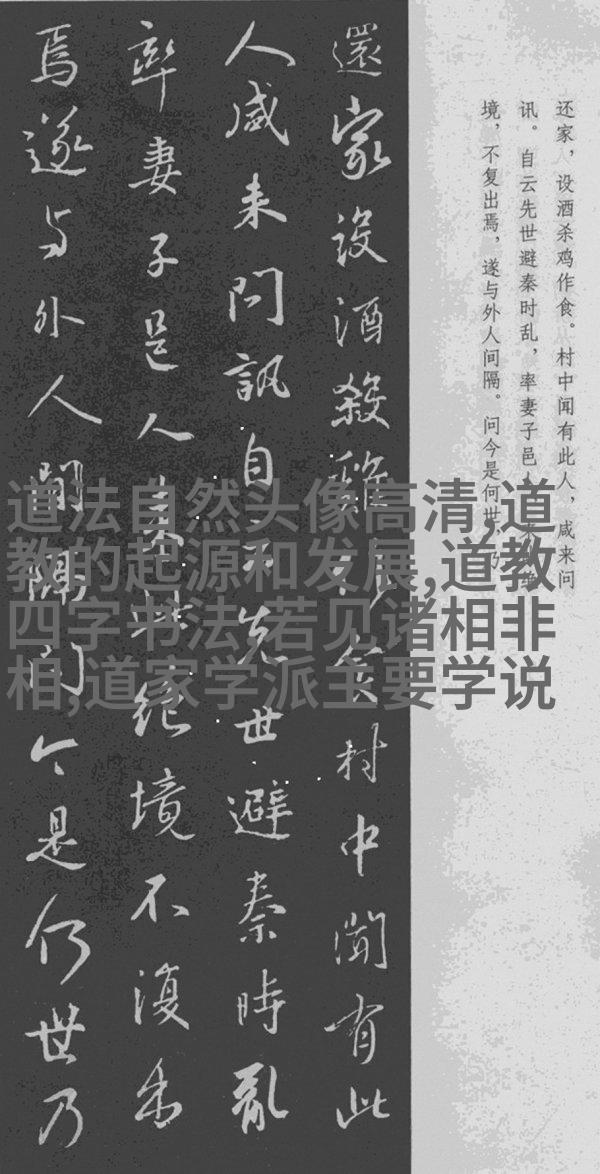 还家，设酒杀鸡作食。村中闻有此人，咸来问
讯。自云先世避秦时乱，率妻子邑
境，不复出焉，遂与外人间隔。问今是何世，乃
還家設酒殺雞作食村中聞有此
人咸来問訊自云先世避秦時亂
率妻子邑人来此絕境不復出
焉遂与外人間隔問今是何世乃
道法自然头像高清,道
教的起源和发展,道教
四字书法,若见诸相非
相,道家学派主要学说